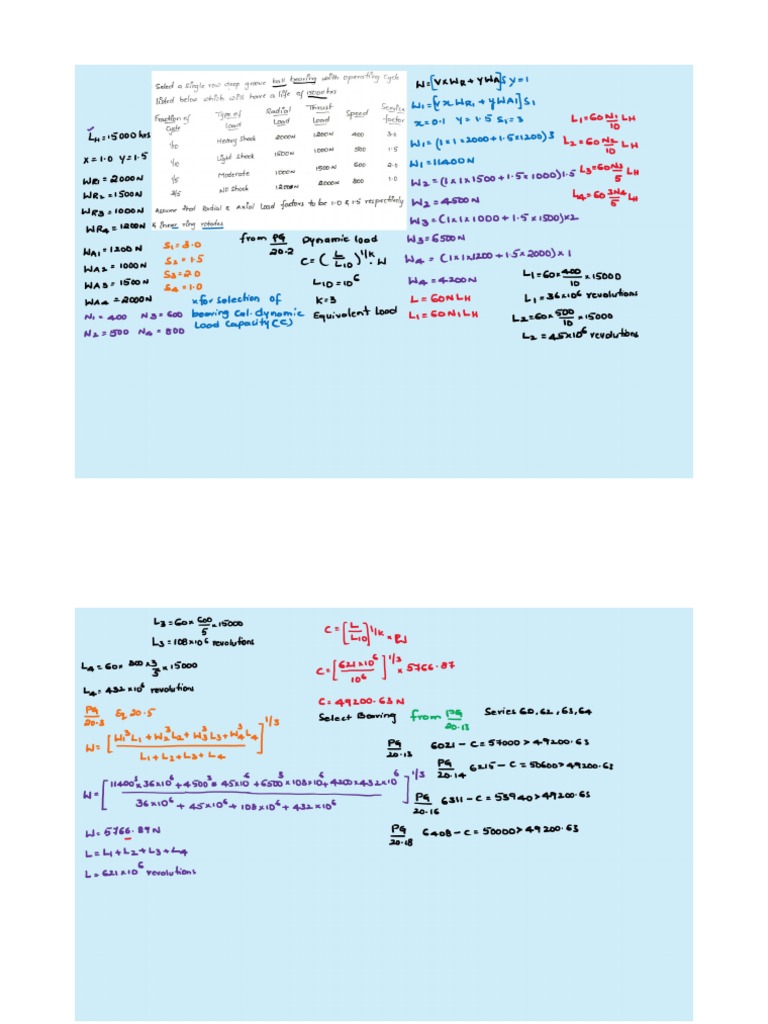 Select a single row deep groove ball bearing with operating cycle
listed below which will have a life of 15000 hrs
Fraction of Cycle Type of Load Radial Load Thrust Load Speed Service factor
1/10 Heavy Shock 2000N 1200N 400 3.0
1/10 Light Shock 1500N 1000N 500 1.5
1/5 Moderate 1000N 1500N 600 2.0
3/5 No Shock 1200N 2000N 800 1.0
Assume that Radial & Axial Load factors to be 1.0 & 1.5 respectively
& inner ring rotates
LH=15000 hrs
X=1.0 Y=1.5
WR1=2000N
WR2=1500N
WR3=1000N
WR4=1200N
WA1=1200N
WA2=1000N
WA3=1500N
WA4=2000N
N1=400 N3=600
N2=500 N4=800
S1=3.0
S2=1.5
S3=2.0
S4=1.0
*for selection of
bearing cal. dynamic
Load Capacity (C)
from PG
20.2
Dynamic load
C=(L/L10)^1/K . W
L10=10^6
K=3
Equivalent Load
W=[VXWR+YWA]S V=1
W1=[VXWR1+YWA1]S1
x=0.1 Y=1.5 S1=3
W1=(1×1×2000+1.5×1200)3
W1=11400N
W2=(1×1×1500+1.5×1000)1.5
W2=4500N
W3=(1×1×1000+1.5×1500)×2
W3=6500N
W4=(1×1×1200+1.5×2000)×1
W4=4200N
L=60NLH
L1=60N1LH
L1=60 N1/10 LH
L2=60 N2/10 LH
L3=60 N3/5 LH
L4=60 3N4/5 LH
L1=60×400/10×15000
L1=36×10^6 revolutions
L2=60×500/10×15000
L2=45×10^6 revolutions
L3=60×600/5×15000
L3=108×10^6 revolutions
L4=60×800×3/5×15000
L4=432×10^6 revolutions
PG 20.3 Eq 20.5
W=[W1^3L1+W2^3L2+W3^3L3+W4^3L4/L1+L2+L3+L4]^1/3
W=[11400^3×36×10^6+4500^3×45×10^6+6500^3×108×10^6+4200×432×10^6/36×10^6+45×10^6+108×10^6+432×10^6]^1/3
W=5766.89N
L=L1+L2+L3+L4
L=621×10^6 revolutions
C=[L/L10]^1/K × W
C=[621×10^6/10^6]^1/3 × 5766.87
C=49200.63N
Select Bearing from PG 20.13 Series 60, 62, 63, 64
PG 20.13 6021-C=57000>49200.63
PG 20.14 6215-C=50600>49200.63
PG 20.16 6311-C=53940>49200.63
PG 20.18 6408-C=50000>49200.63